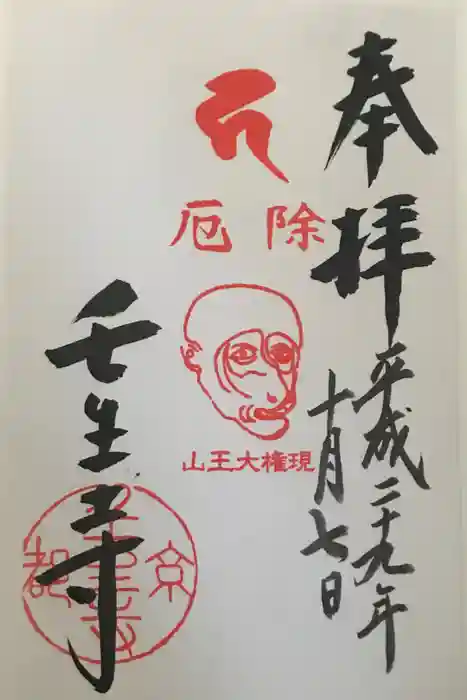 奉拝
平成二十九年
十月七日
厄除
山王大権現
壬生寺
京都
壬生寺